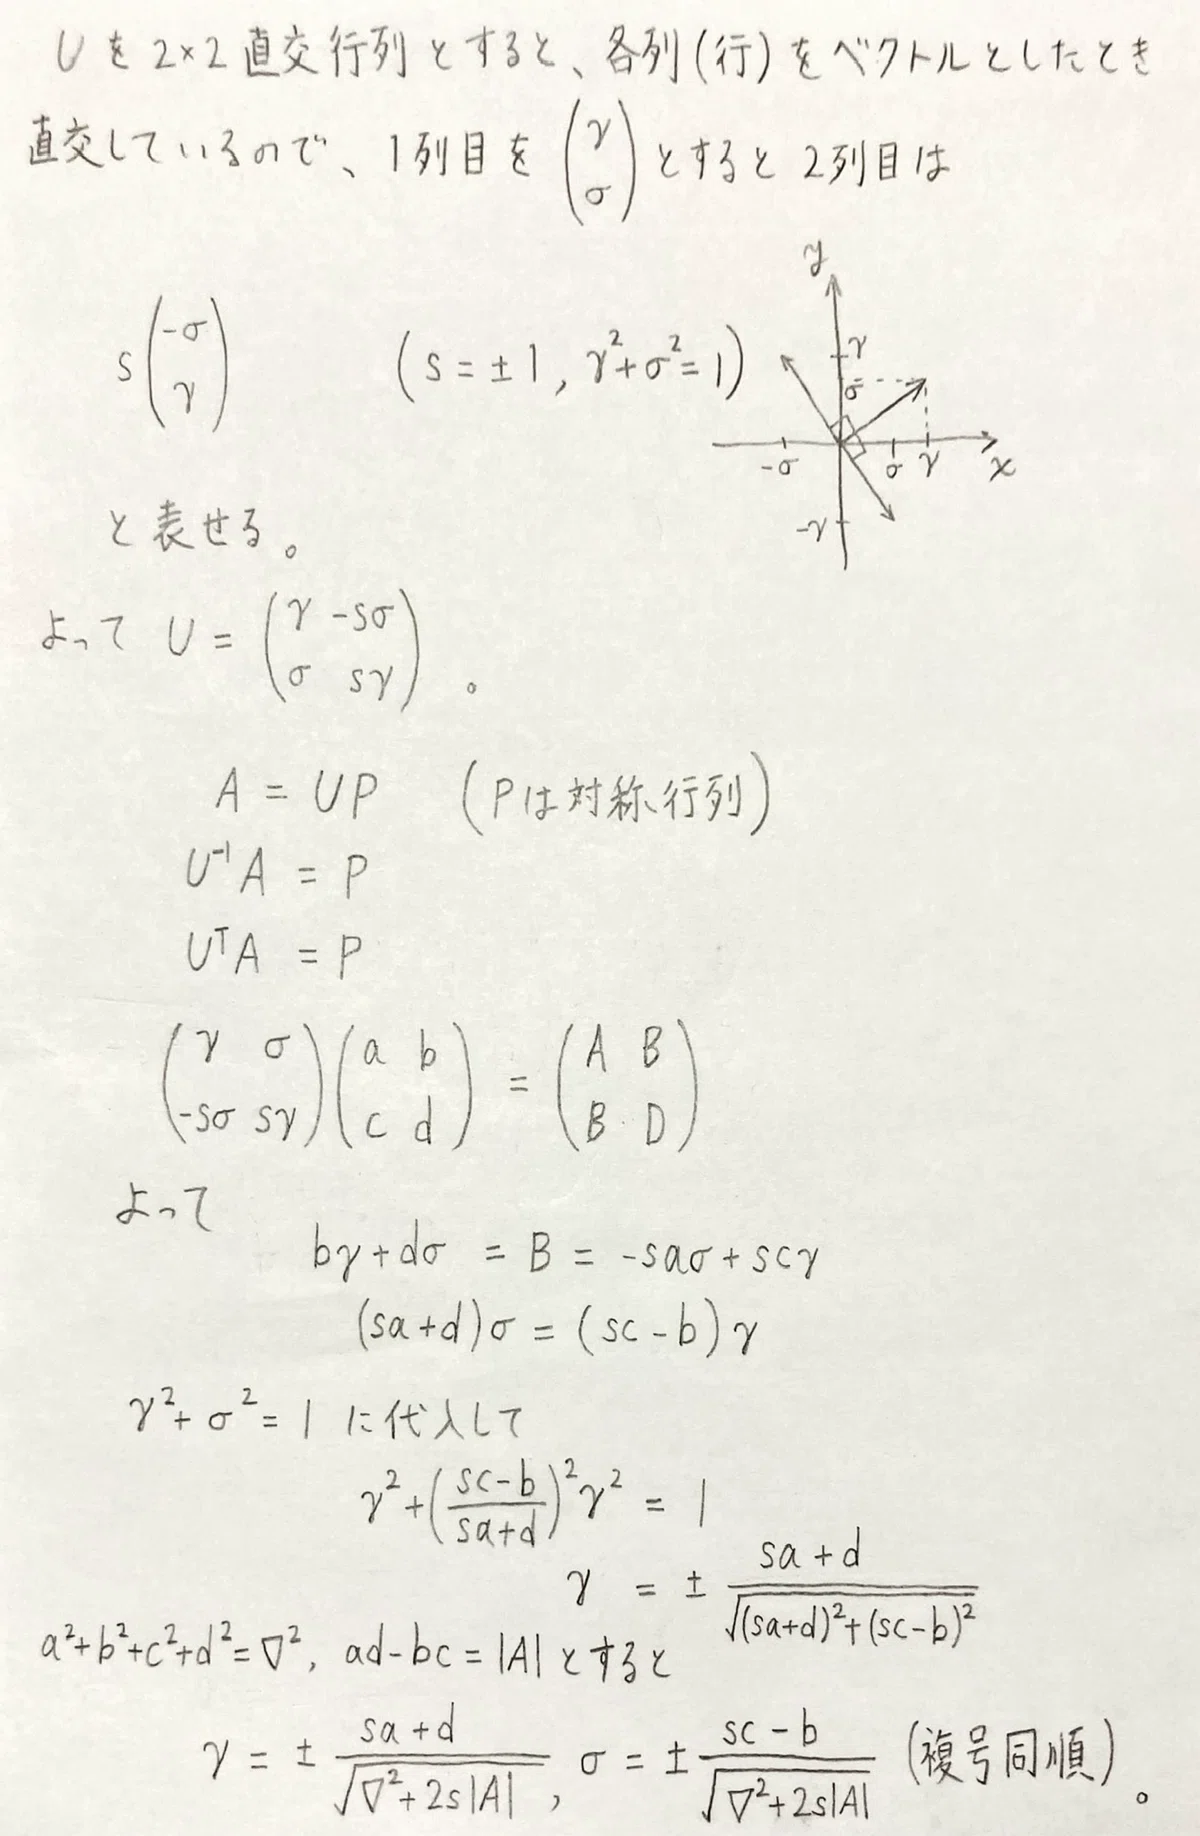 Uを2×2直交行列とすると、各列(行)をベクトルとしたとき
直交しているので、1列目を(γ σ)とすると2列目は
s(-σ γ) (s=±1, γ²+σ²=1)
y
γ
σ
-σ σ γ x
-γ
と表せる。
よって U = (γ -sσ
σ sγ)。
A = UP (Pは対称行列)
U⁻¹A = P
UᵀA = P
(γ σ)(a b) = (A B)
(-sσ sγ)(c d) (B D)
よって
bγ+dσ = B = -saσ+scγ
(sa+d)σ = (sc-b)γ
γ²+σ²=1 に代入して
γ²+((sc-b)/(sa+d))²γ² = 1
γ = ± (sa+d)/√((sa+d)²+(sc-b)²)
a²+b²+c²+d²=▽², ad-bc=|A|とすると
γ = ± (sa+d)/√(▽²+2s|A|), σ = ± (sc-b)/√(▽²+2s|A|) (複号同順)。